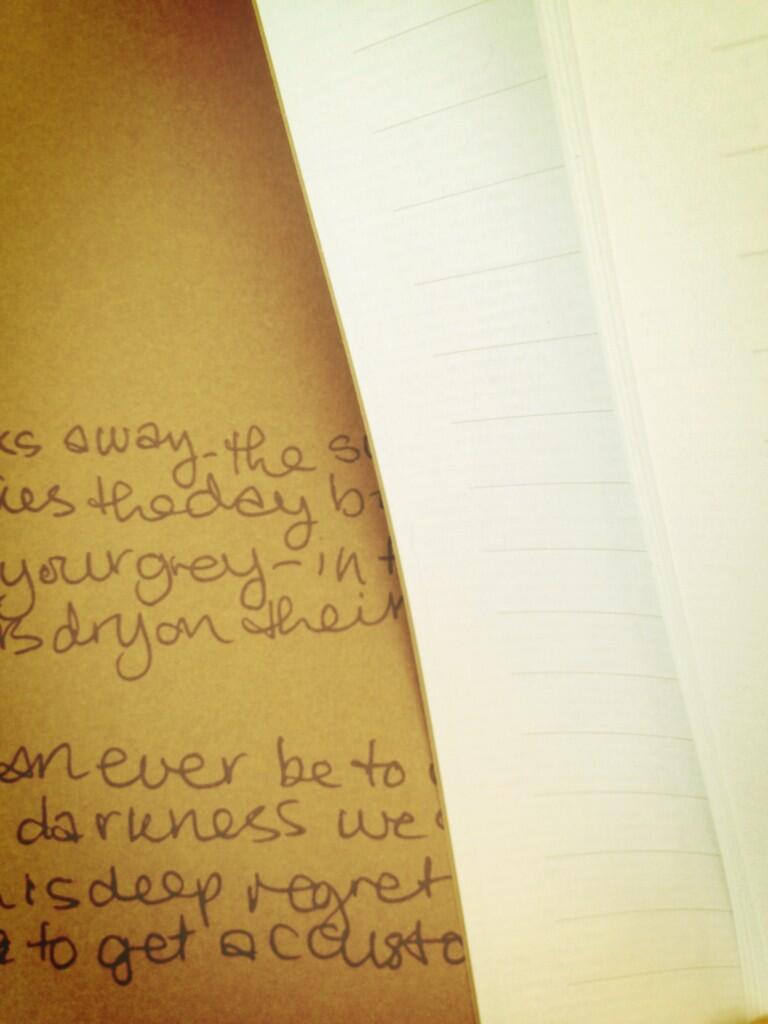 ks away-the su
ies the day br
your grey-in t
rs dry on their
an ever be to
darkness we
is deep regret
e to get accusto